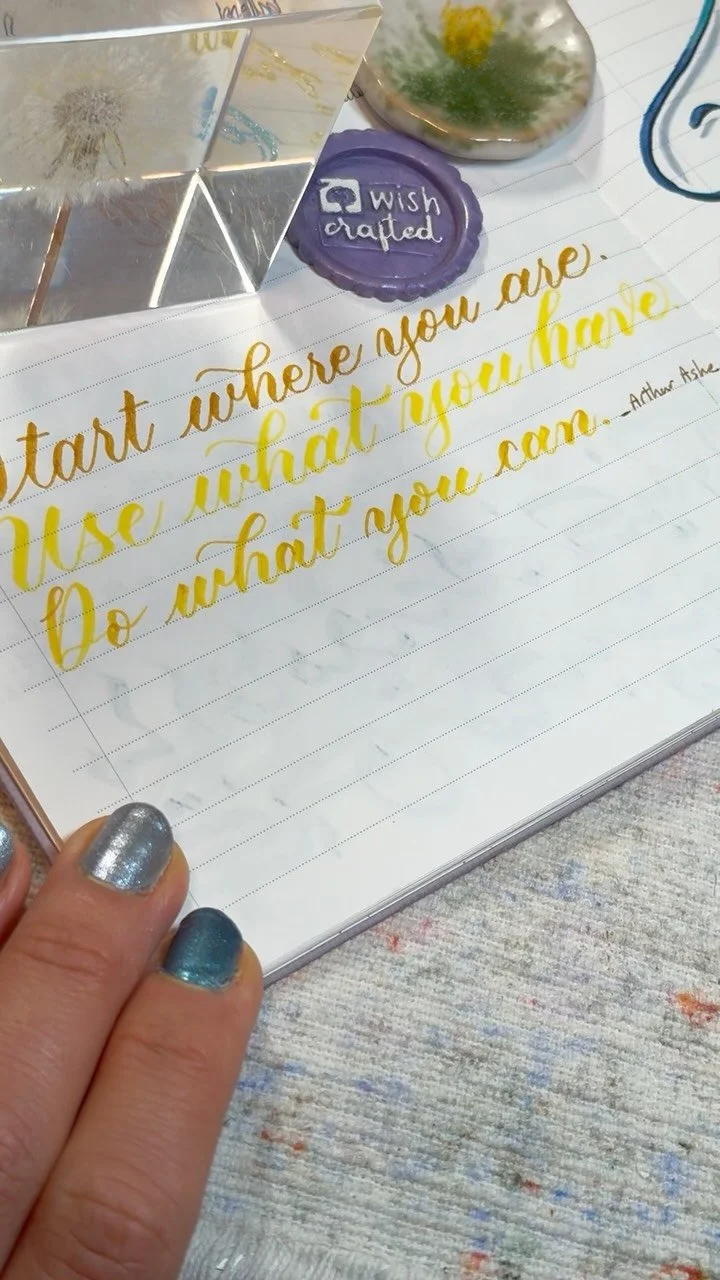 wish
crafted
Start where you are.
Use what you have.
Do what you can. -Arthur Ashe